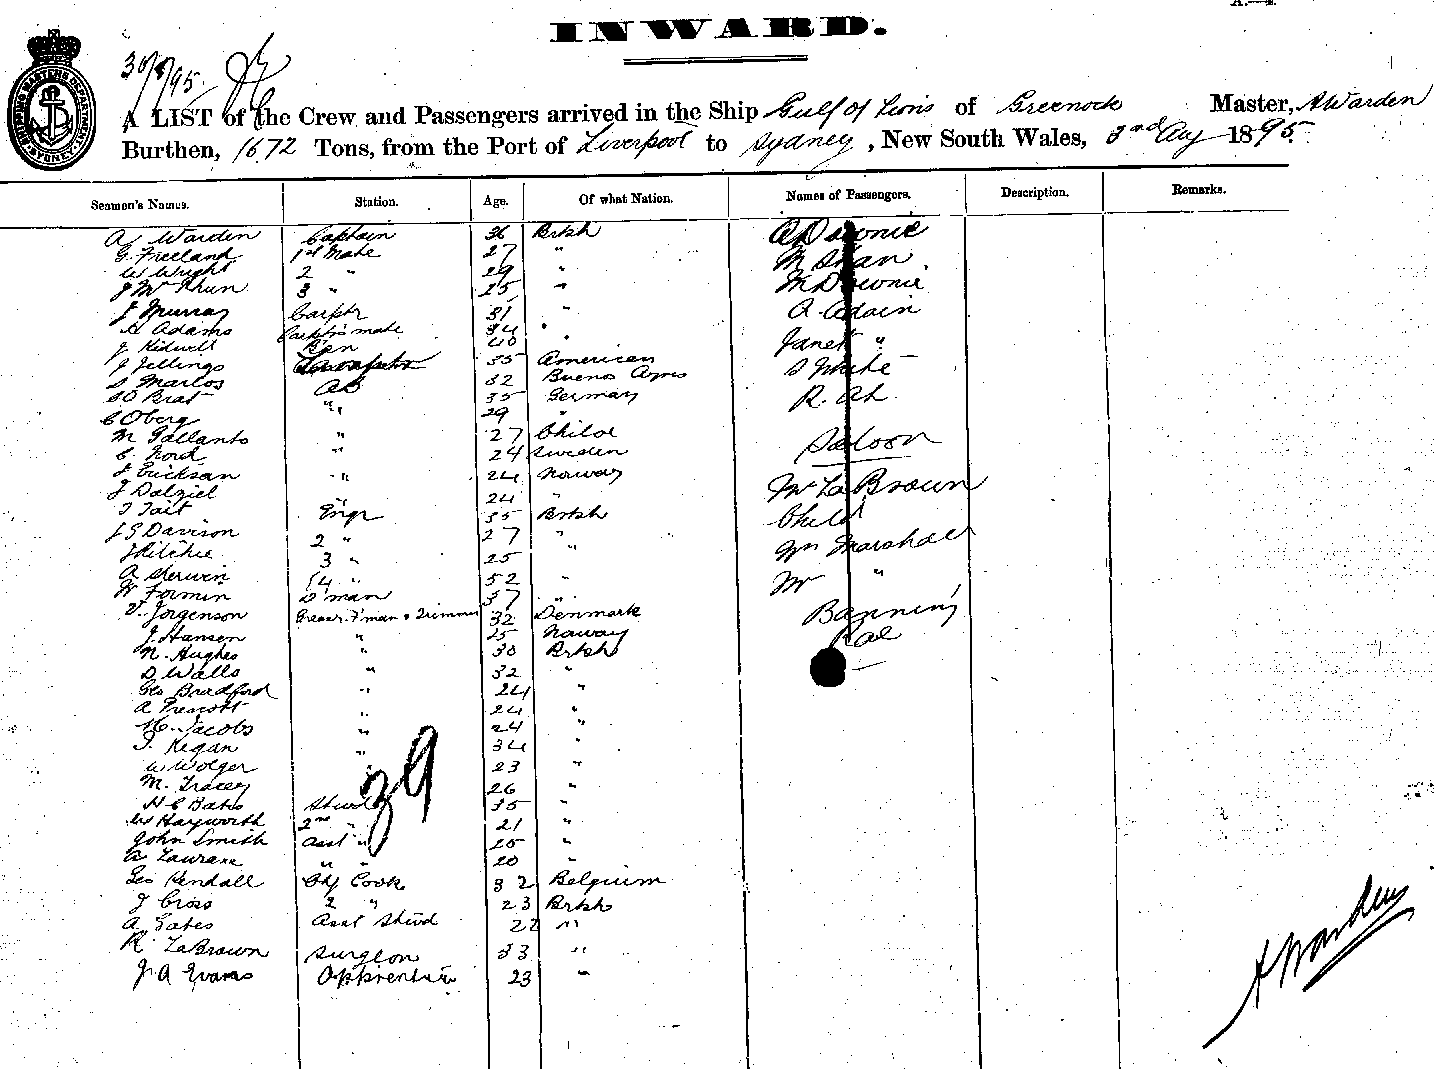 INWARD.
30/7/95.
A LIST of the Crew and Passengers arrived in the Ship Gulf of Lions of Greenock Master, A Warden
Burthen, 1672 Tons, from the Port of Liverpool to Sydney, New South Wales, 3rd Aug 1895.
Seamen's Names. Station. Age. Of what Nation. Names of Passengers. Description. Remarks.
A Warden Captain 36 Brtsh
G. Freeland 1st Mate 27 "
W Wright 2 " 29 "
3 " 25 "
J Murray Carptr 31 "
A Adams Carptr's mate 34 "
J. Kidwell 40 "
J Jellings 35 American
S Marlos AB 32 Buenos Ayres
Brat " 35 German
C Oberg " 29 "
M Gallants " 27 Chiloe
C. Nord " 24 Sweden
J Ericksan " 24 Norway
J Dalziel " 24 "
T Tait Engr 35 Brtsh
J S Davison 2 " 27 "
J Ritchie 3 " 25 "
A Sherwin 4 " 52 "
W Formin D'man 37 "
V. Jorgenson Greaser F'man & Trimmer 32 Denmark
J. Hansen " 25 Norway
N. Hughes " 30 Brtsh
D Walls " 32 "
Geo Bradford " 24 "
A Prescott " 24 "
H. Jacobs " 24 "
T. Kegan " 34 "
W Wolger " 23 "
M. Tracey " 26 "
H C Bates Stwd 35 "
W Hayworth 2nd " 21 "
John Smith Asst " 25 "
A Laurane " " 20 "
Geo Kendall Chf Cook 32 Belgium
J Cross 2 " 23 Brtsh
A. Gates Asst Stwd 22 "
R LaBrown Surgeon 33 "
J. A Evans Apprentice 23 "
39
Downie
M Shan
M Downie
A. Adain
Janet "
S White
R. Ah
Saloon
Mr La Brown
Child
Marshall
Mr "
Banning
Rae
A Warden